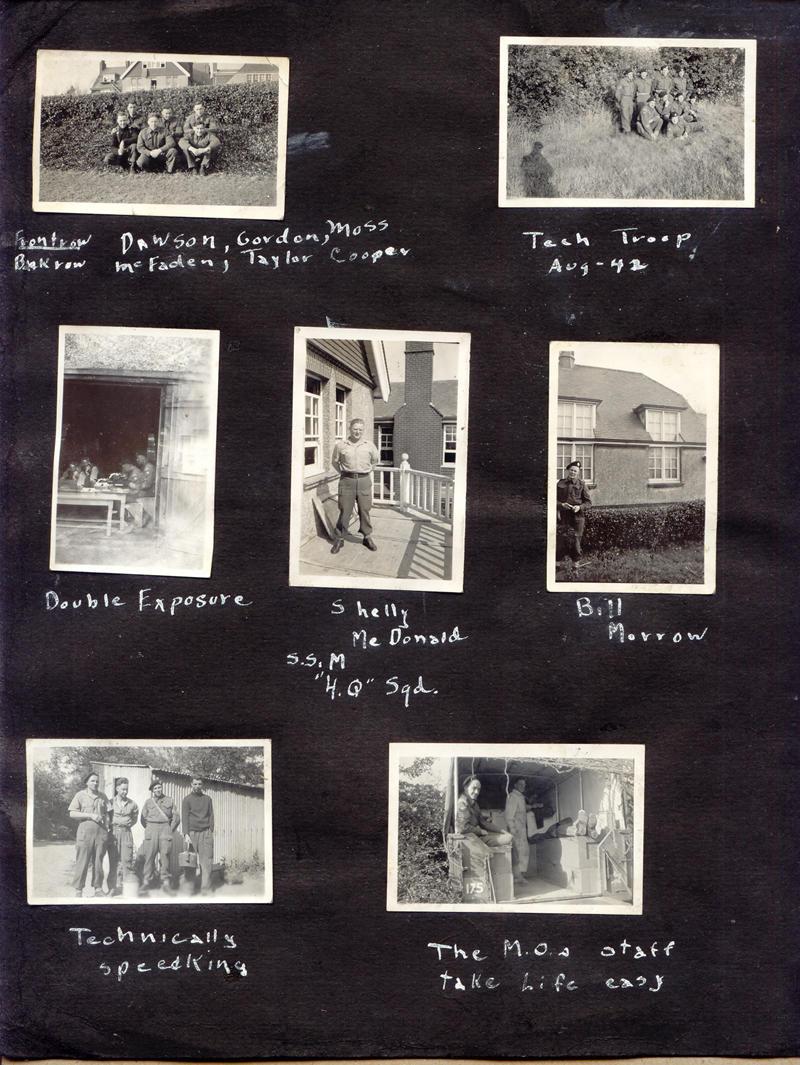 Front row Dawson, Gordon, Moss
Back row McFaden, Taylor Cooper
Tech Troop
Aug-42
Double Exposure
Shelly
McDonald
S.S.M
"H.Q" Sqd.
Bill
Morrow
Technically
speedking
175
The M.O.s staff
take Life easy